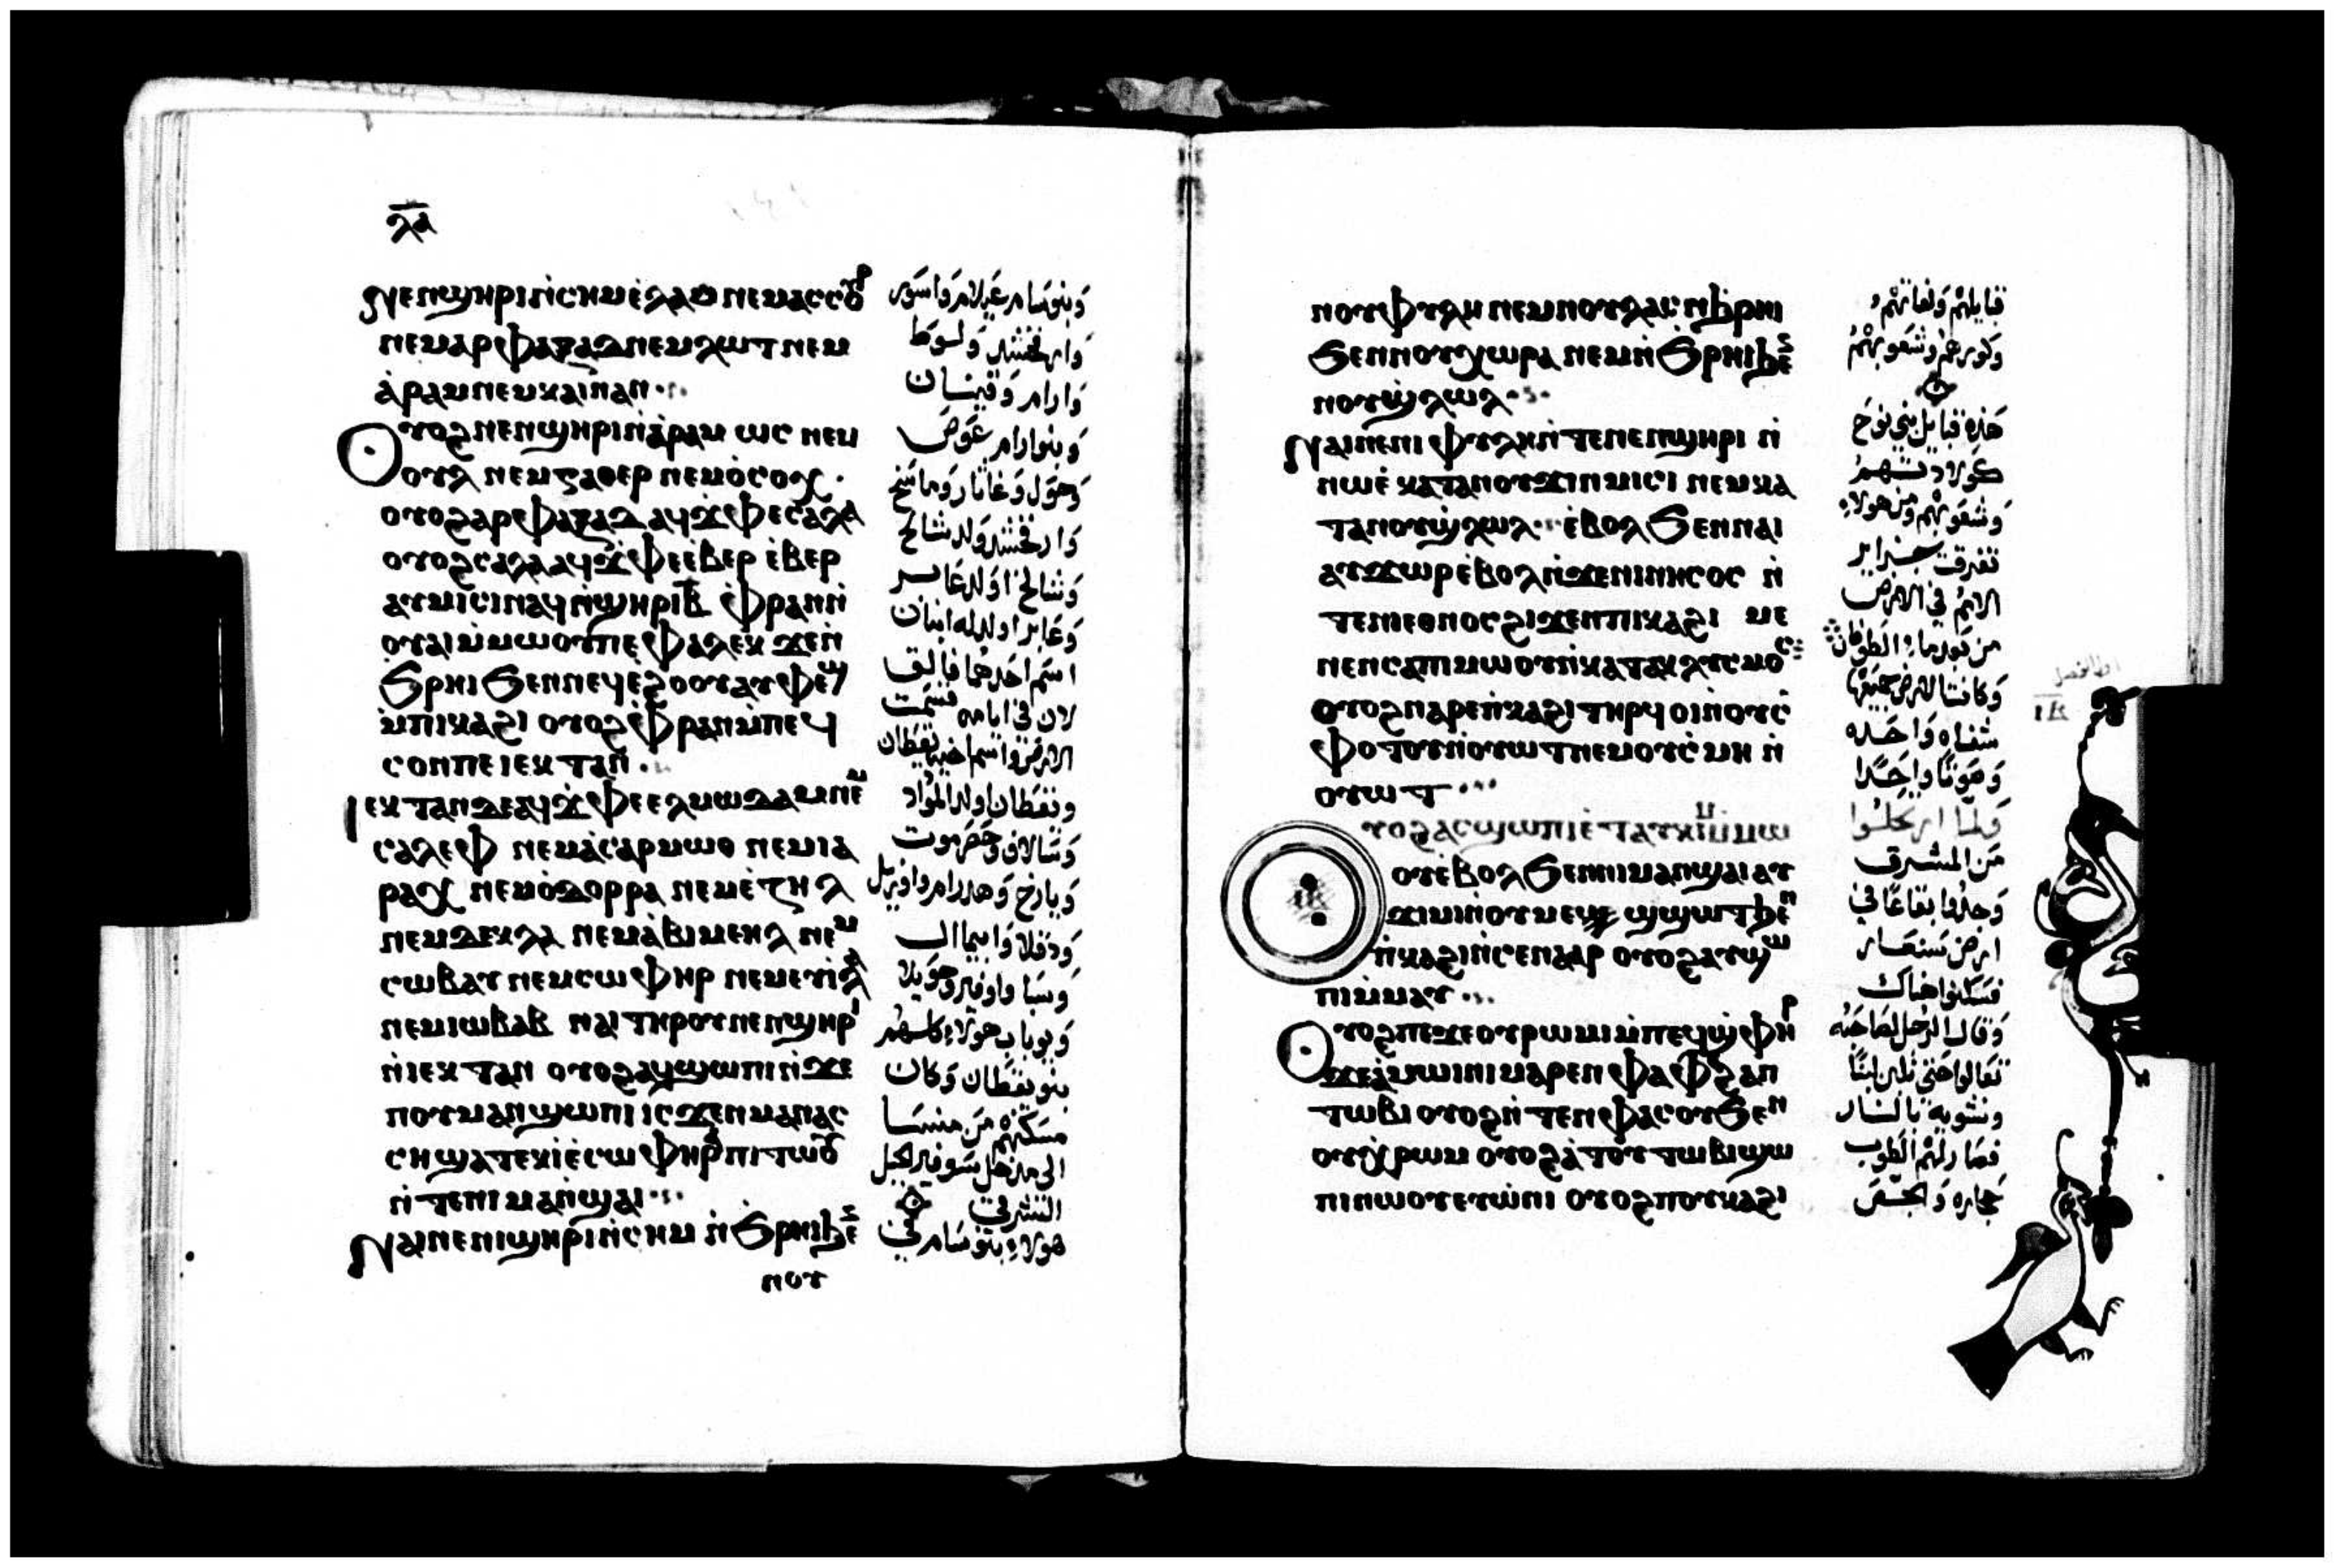 ⲗⲁ
ⲛⲉⲛϣⲏⲣⲓ ⲛ̀ⲥⲏⲙ ⲉ̀ⲗⲁⲙ ⲛⲉⲙ ⲁⲥⲥⲟⲩⲣ
ⲛⲉⲙ ⲁⲣⲫⲁⲝⲁⲇ ⲛⲉⲙ ⲗⲱⲧ ⲛⲉⲙ
ⲁ̀ⲣⲁⲙ ⲛⲉⲙ ⲕⲁⲓ̈ⲛⲁⲛ
ⲟⲩⲟϩ ⲛⲉⲛϣⲏⲣⲓ ⲛ̀ⲁ̀ⲣⲁⲙ ⲱⲥ ⲛⲉⲙ
ⲟⲩⲗ ⲛⲉⲙ ⲅⲁⲑⲉⲣ ⲛⲉⲙ ⲟ̀ⲥⲟⲭ
ⲟⲩⲟϩ ⲁⲣⲫⲁⲝⲁⲇ ⲁϥϫ̀ⲫⲉ ⲥⲁⲗⲁ
ⲟⲩⲟϩ ⲥⲁⲗⲁ ⲁϥϫ̀ⲫⲉ ⲉ̀ⲃⲉⲣ ⲉ̀ⲃⲉⲣ
ⲁⲩⲙⲓⲥⲓ ⲛⲁϥ ⲛ̀ϣⲏⲣⲓ ⲃ̅ ⲫ̀ⲣⲁⲛ ⲛ̀
ⲟⲩⲁⲓ ⲙ̀ⲙⲱⲟⲩ ⲡⲉ ⲫⲁⲗⲉⲕ ϫⲉ ⲛ̀
ϧⲣⲏⲓ ϧⲉⲛ ⲛⲉϥⲉ̀ϩⲟⲟⲩ ⲁⲩⲫⲉϣ
ⲙ̀ⲡⲓⲕⲁϩⲓ ⲟⲩⲟϩ ⲫ̀ⲣⲁⲛ ⲙ̀ⲡⲉϥ
ⲥⲟⲛ ⲡⲉ ⲓⲉⲕⲧⲁⲛ
ⲓⲉⲕⲧⲁⲛ ⲇⲉ ⲁϥϫ̀ⲫⲉ ⲉⲗⲙⲱⲇⲁⲙ ⲛⲉⲙ
ⲥⲁⲗⲉⲫ ⲛⲉⲙ ⲁ̀ⲥⲁⲣⲙⲱⲑ ⲛⲉⲙ ⲓⲁ
ⲣⲁⲭ ⲛⲉⲙ ⲟ̀ⲇⲟⲣⲣⲁ ⲛⲉⲙ ⲉ̀ⲍⲏⲗ
ⲛⲉⲙ ⲇⲉⲕⲗⲁ ⲛⲉⲙ ⲁ̀ⲃⲓⲙⲉⲏⲗ ⲛⲉⲙ
ⲥⲱⲃⲁⲩ ⲛⲉⲙ ⲥⲱⲫⲏⲣ ⲛⲉⲙ ⲉⲩⲓⲗⲁ
ⲛⲉⲙ ⲓⲱⲃⲁⲃ ⲛⲁⲓ ⲧⲏⲣⲟⲩ ⲛⲉⲛϣⲏⲣⲓ
ⲛ̀ⲓⲉⲕⲧⲁⲛ ⲟⲩⲟϩ ⲁϥϣⲱⲡⲓ ⲛ̀ϫⲉ
ⲛⲟⲩⲙⲁⲛ̀ϣⲱⲡⲓ ⲓⲥϫⲉⲛ ⲙⲁⲛⲁⲥ
ⲥⲏ ϣⲁⲧⲉⲕⲓ̀ ⲉ̀ⲥⲱⲫⲏⲣⲁ ⲡⲓⲧⲱⲟⲩ
ⲛ̀ⲧⲉ ⲛⲓⲙⲁⲛ̀ϣⲁⲓ
ⲛⲁⲓ ⲛⲉ ⲛⲓϣⲏⲣⲓ ⲛ̀ⲥⲏⲙ ⲛ̀ϧⲣⲏⲓ ϧⲉⲛ
ⲛⲟⲩ
وبنو سام عيلام واسور
وارفخشد ولوط
وارام وقينان
وبنو ارام عوص
وحول وغاثار وماشخ
وارفخشد ولد شالخ
وشالخ اولد عابر
وعابر اولد له ابنان
اسم احدهما فالق
لان في ايامه قسمت
الارض واسم اخيه يقطان
ويقطان اولد الموداد
وشالاف وحضرموت
ويارخ وهدرام واوزيل
ودقلا وابيمايل
وسبا واوفير وحويلا
ويوباب هولاء كلهم
بنو يقطان وكان
مسكنهم من منسا
الى مدخل سوفير الجبل
الشرقي
هولاء بنو سام في
ⲛⲟⲩⲫⲩⲗⲏ ⲛⲉⲙ ⲛⲟⲩⲗⲁⲥ ⲛ̀ϧⲣⲏⲓ
ϧⲉⲛ ⲛⲟⲩⲭⲱⲣⲁ ⲛⲉⲙ ⲛ̀ϧⲣⲏⲓ ϧⲉⲛ
ⲛⲟⲩϣ̀ⲗⲱⲗ
ⲛⲁⲓ ⲛⲉ ⲛⲓⲫⲩⲗⲏ ⲛ̀ⲧⲉ ⲛⲉⲛϣⲏⲣⲓ ⲛ̀
ⲛⲱⲉ̀ ⲕⲁⲧⲁ ⲛⲟⲩϫⲓⲛⲙⲓⲥⲓ ⲛⲉⲙ ⲕⲁ
ⲧⲁ ⲛⲟⲩϣ̀ⲗⲱⲗ ⲉ̀ⲃⲟⲗ ϧⲉⲛ ⲛⲁⲓ
ⲁⲩϫⲱⲣ ⲉ̀ⲃⲟⲗ ⲛ̀ϫⲉ ⲛⲓⲛⲏⲥⲟⲥ ⲛ̀
ⲧⲉ ⲛⲓⲉⲑⲛⲟⲥ ϩⲓϫⲉⲛ ⲡⲓⲕⲁϩⲓ ⲙⲉ
ⲛⲉⲛⲥⲁ ⲡⲓⲙⲱⲟⲩ ⲛ̀ⲕⲁⲧⲁⲕⲗⲩⲥⲙⲟⲥ
ⲟⲩⲟϩ ⲛⲁⲣⲉ ⲡ̀ⲕⲁϩⲓ ⲧⲏⲣϥ ⲟⲓ ⲛ̀ⲟⲩⲥ̀
ⲫⲟⲧⲟⲩ ⲛ̀ⲟⲩⲱⲧ ⲛⲉⲙ ⲟⲩⲥ̀ⲙⲏ ⲛ̀
ⲟⲩⲱⲧ
ⲩⲟϩ ⲁⲥϣⲱⲡⲓ ⲉ̀ⲧⲁⲩⲕⲓⲙ ⲛ̀ⲙⲱ
ⲟⲩ ⲉ̀ⲃⲟⲗ ϧⲉⲛ ⲛⲓⲙⲁⲛϣⲁⲓ ⲁⲩ
ϫⲓⲙⲓ ⲛ̀ⲟⲩⲙⲉϣϣⲱⲧ ϧⲉⲛ
ⲡ̀ⲕⲁϩⲓ ⲛ̀ⲥⲉⲛⲁⲁⲣ ⲟⲩⲟϩ ⲁⲩϣⲱ
ⲡⲓ ⲙ̀ⲙⲁⲩ
ⲟⲩⲟϩ ⲡⲉϫⲉ ⲟⲩⲣⲱⲙⲓ ⲙ̀ⲡⲉϥϣ̀ⲫⲏⲣ
ϫⲉ ⲁ̀ⲙⲱⲓⲛⲓ ⲙⲁⲣⲉⲛⲫⲁⲫ ϩⲁⲛ
ⲧⲱⲃⲓ ⲟⲩⲟϩ ⲛ̀ⲧⲉⲛⲫⲁⲥⲟⲩ ϧⲉⲛ
ⲟⲩⲭ̀ⲣⲱⲙ ⲟⲩⲟϩ ⲁ̀ ⲧⲟⲩⲧⲱⲃⲓ ϣⲱ
ⲡⲓ ⲛⲱⲟⲩ ⲉⲩⲱ̀ⲛⲓ ⲟⲩⲟϩ ⲛⲟⲩⲕⲁϩⲓ
قبايلهم ولغاتهم
وكورهم وشعوبهم
هذه قبايل بني نوح
كولادتهم
وشعوبهم ومن هولاء
تفرقت جزاير
الامم في الارض
من بعد ماء الطوفان
وكانت الارض جميعها
شفاه واحده
وصوتا واحدا
ولما ارتحلوا
من المشرق
وجدوا بقاعا في
ارض سنعار
فسكنوا هناك
وقال الرجل لصاحبه
تعالوا حتى نلبن لبنا
ونشويه بالنار
فصار لهم الطوب
حجاره والجص
ⲓⲃ